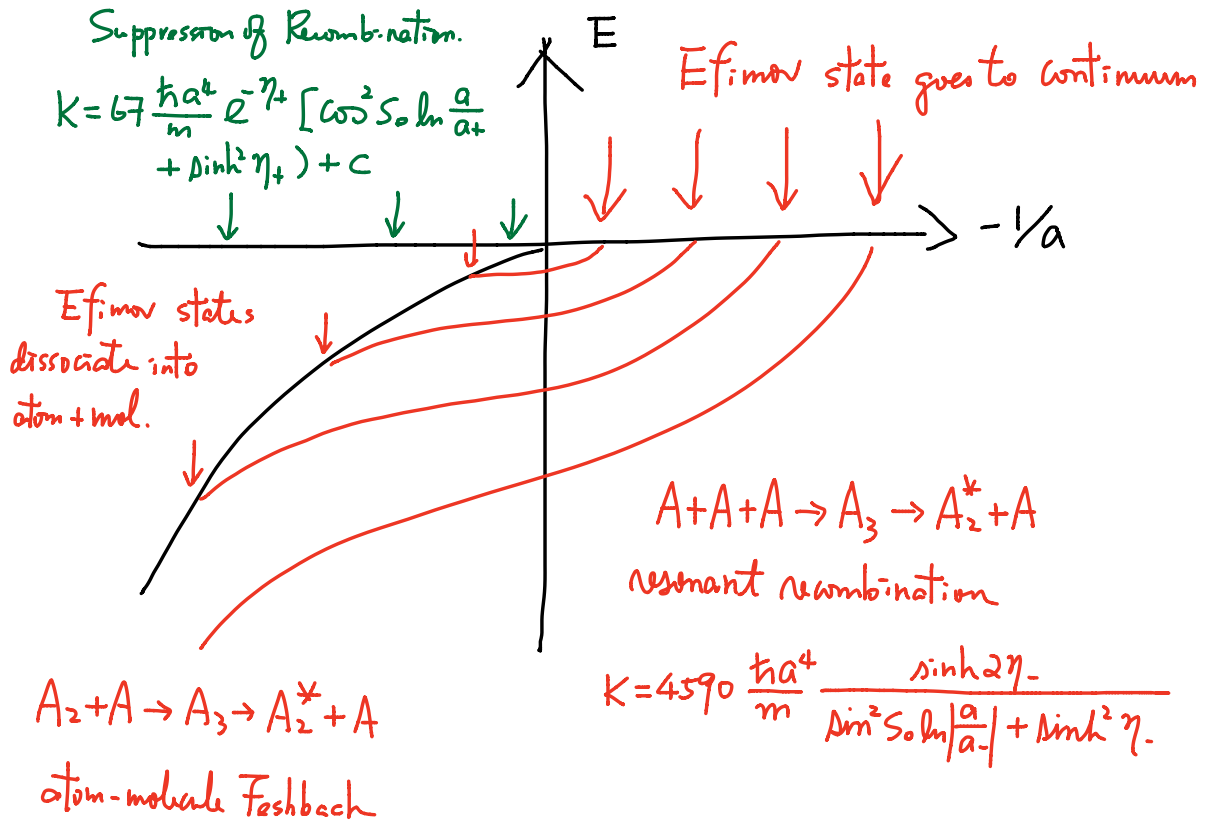 Suppression of Recombination.
K = 67 ħa⁴/m e^{-η₊} [cos² S₀ ln a/a₊
+ sinh² η₊ ) + C
E
Efimov state goes to continuum
-1/a
Efimov states
dissociate into
atom + mol.
A+A+A → A₃ → A₂* + A
resonant recombination
K = 4590 ħa⁴/m sinh 2η₋ / sin² S₀ ln|a/a₋| + sinh² η₋
A₂+A → A₃ → A₂* + A
atom-molecule Feshbach